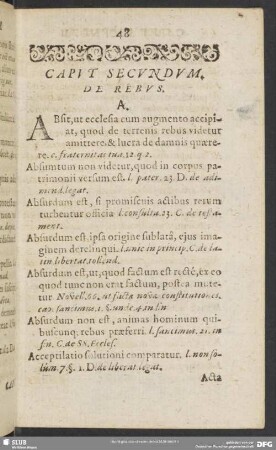 48
CAPUT SECVNDVM.
DE REBVS.
A.
ABsit, ut ecclesia cum augmento accipi-
at, quod de terrenis rebus videtur
amittere: & lucra de damnis quære-
re. c. fraternitas tua. 12. q. 2.
Absumtum non videtur, quod in corpus pa-
trimonii versum est. l. pater. 23. D. de adi-
mend. legat.
Absurdum est, si promiscuis actibus rerum
turbentur officia l. consulta. 23. C. de testa-
ment.
Absurdum est, ipsa origine sublatâ, ejus ima-
ginem derelinqui. l. unic. in princip. C. de la-
tin. libertat. tollend.
Absurdum est, ut, quod factum est rectè, ex eo
quod tunc non erat factum, postea mute-
tur
Absurdum non est, animas hominum qui-
buscunq; rebus præferri. l. sancimus. 21. in
fin. C. de SS. Eccles.
Acceptilatio solutioni comparatur. l. non so-
lùm. 7. §. 1. D. de liberat. legat.
Acta
SLUB
DFG